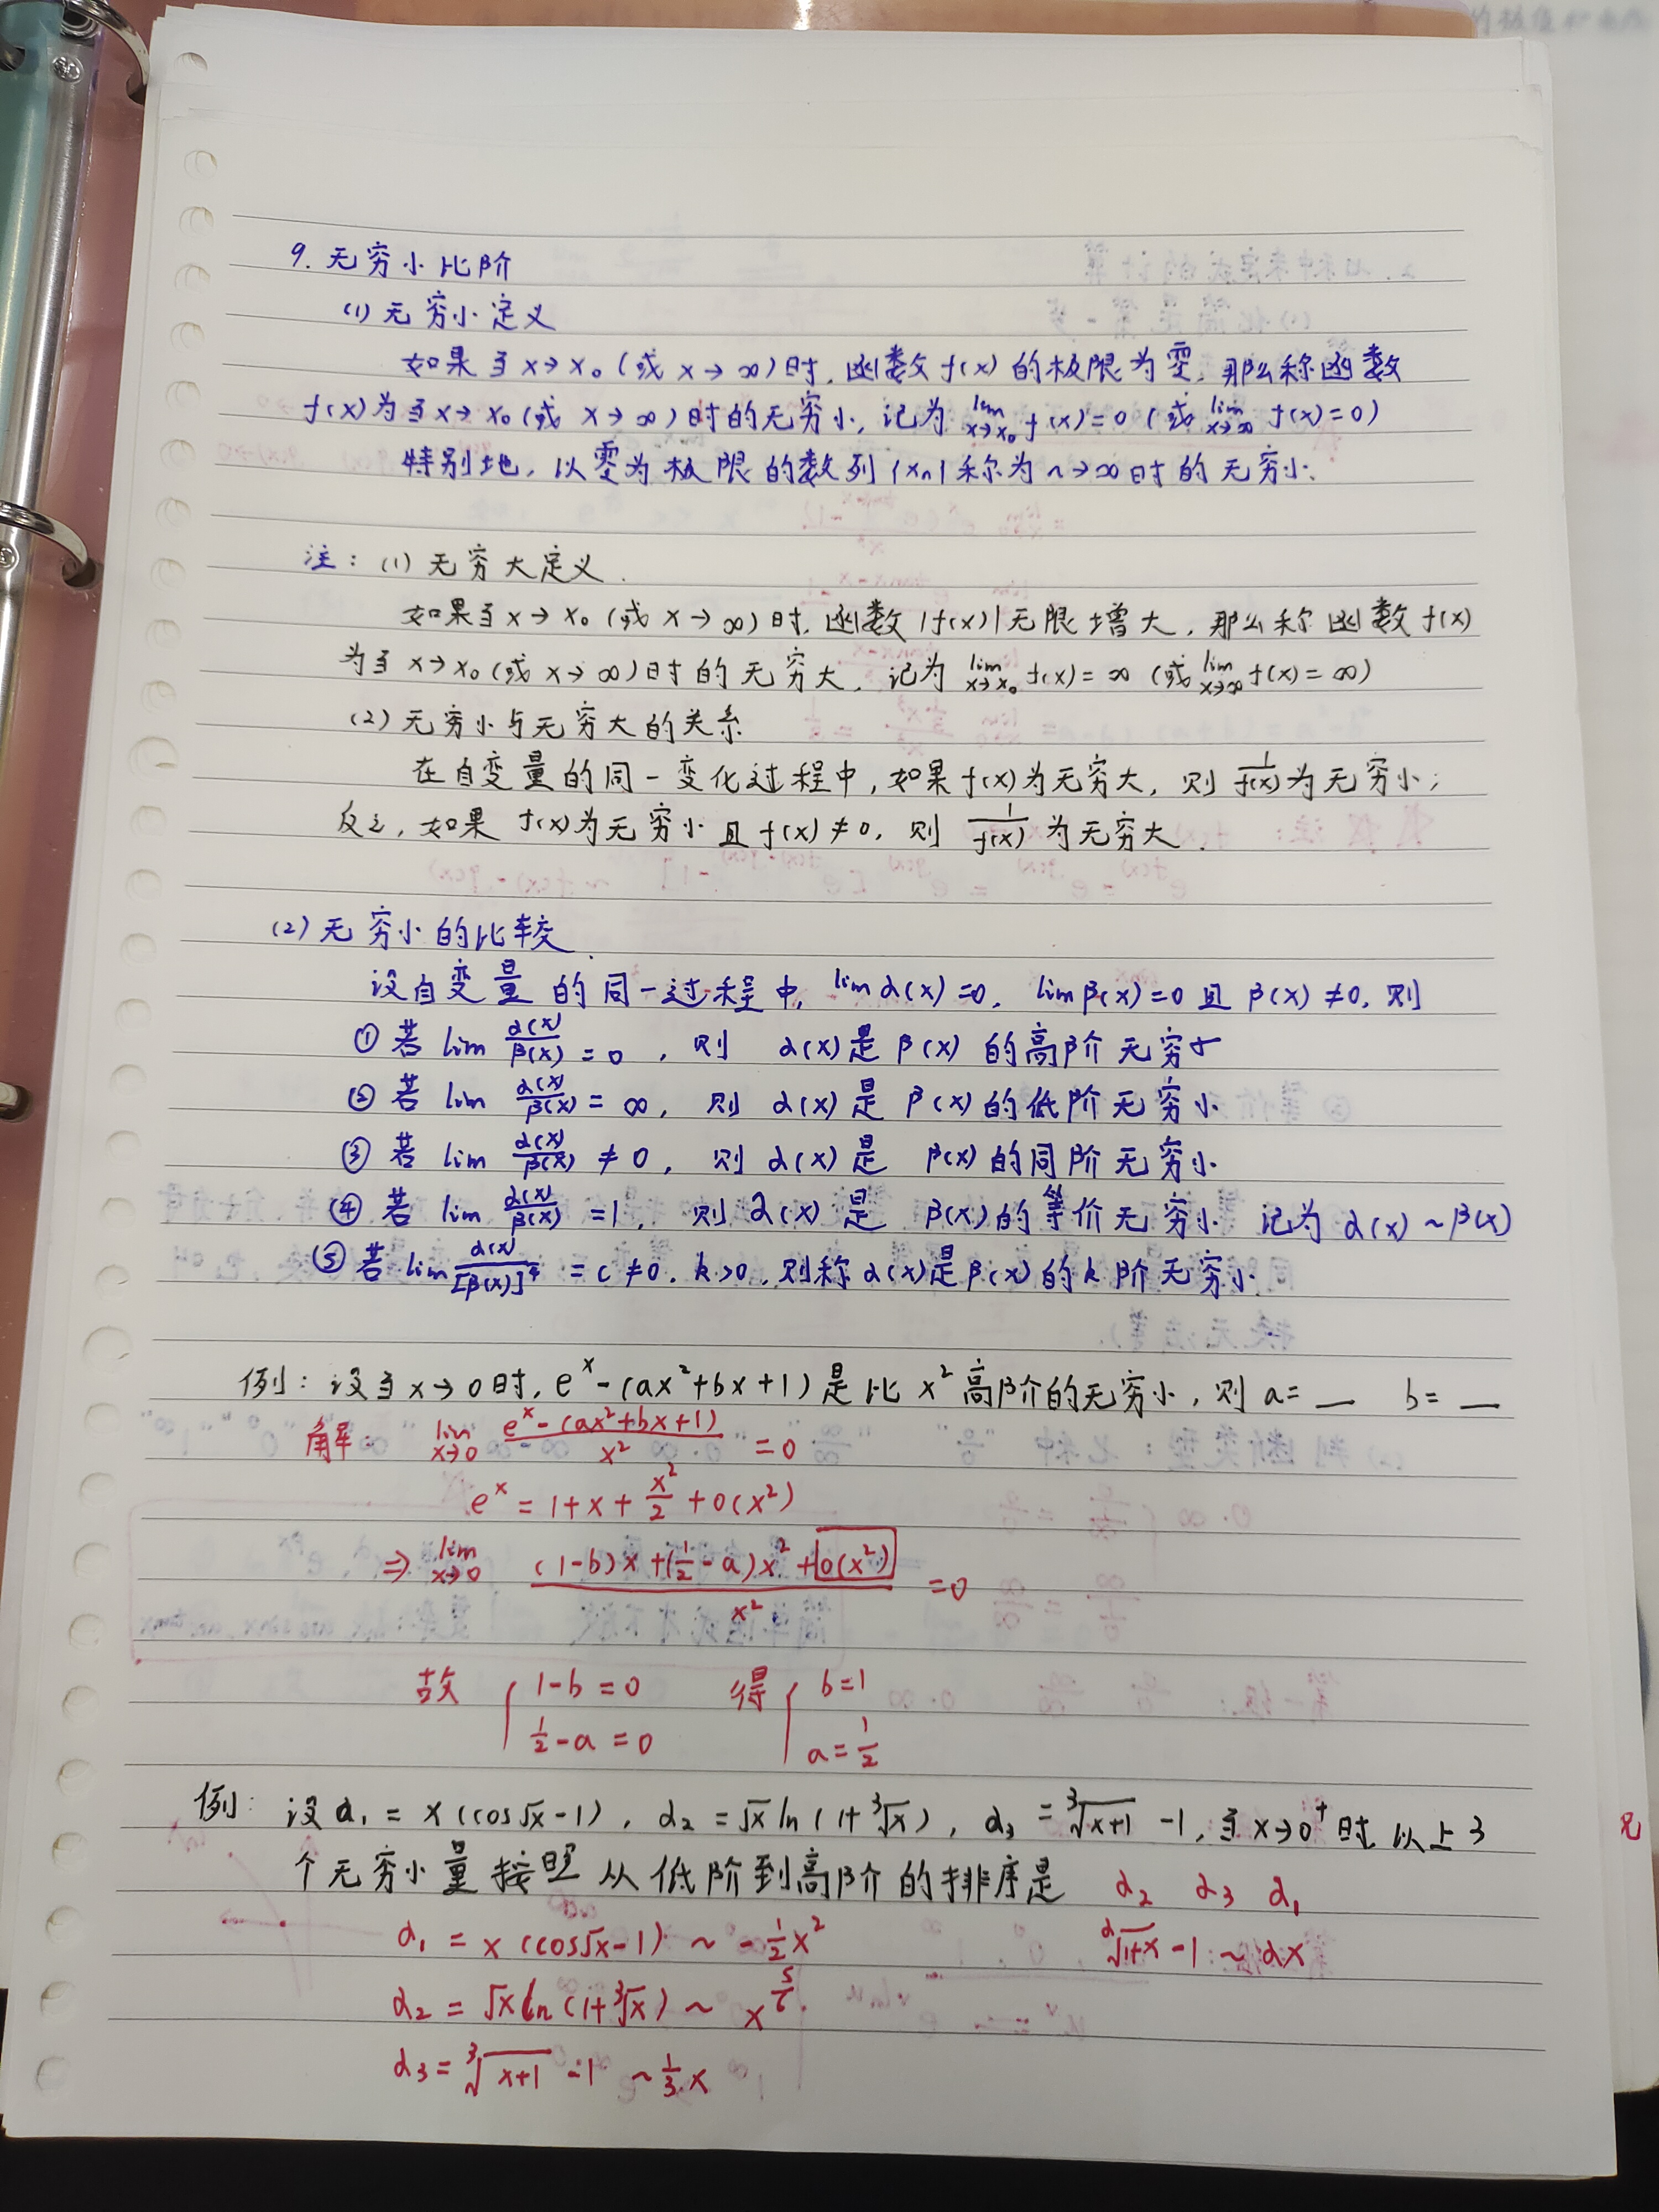 9. 无穷小比阶
(1) 无穷小定义
如果当 x→x₀ (或 x→∞) 时, 函数 f(x) 的极限为零, 那么称函数
f(x) 为当 x→x₀ (或 x→∞) 时的无穷小, 记为 lim_{x→x₀} f(x)=0 (或 lim_{x→∞} f(x)=0)
特别地, 以零为极限的数列 {xₙ} 称为 n→∞ 时的无穷小.
注: (1) 无穷大定义.
如果当 x→x₀ (或 x→∞) 时, 函数 |f(x)| 无限增大, 那么称函数 f(x)
为当 x→x₀ (或 x→∞) 时的无穷大, 记为 lim_{x→x₀} f(x)=∞ (或 lim_{x→∞} f(x)=∞)
(2) 无穷小与无穷大的关系
在自变量的同一变化过程中, 如果 f(x) 为无穷大, 则 1/f(x) 为无穷小;
反之, 如果 f(x) 为无穷小且 f(x)≠0, 则 1/f(x) 为无穷大.
(2) 无穷小的比较.
设自变量的同一过程中, lim α(x)=0, lim β(x)=0 且 β(x)≠0, 则
① 若 lim α(x)/β(x) = 0, 则 α(x) 是 β(x) 的高阶无穷小
② 若 lim α(x)/β(x) = ∞, 则 α(x) 是 β(x) 的低阶无穷小
③ 若 lim α(x)/β(x) ≠ 0, 则 α(x) 是 β(x) 的同阶无穷小
④ 若 lim α(x)/β(x) = 1, 则 α(x) 是 β(x) 的等价无穷小 记为 α(x)~β(x)
⑤ 若 lim α(x)/[β(x)]^k = c≠0, k>0, 则称 α(x) 是 β(x) 的 k 阶无穷小
例: 设当 x→0 时, e^x-(ax²+bx+1) 是比 x² 高阶的无穷小, 则 a= __ b= __
解: lim_{x→0} (e^x-(ax²+bx+1))/x² = 0
e^x = 1+x+x²/2+o(x²)
⇒ lim_{x→0} ((1-b)x+(1/2-a)x²+o(x²))/x² = 0
故 { 1-b=0 得 { b=1
1/2-a=0 a=1/2
例: 设 α₁ = x(cos√x-1), α₂ = √x ln(1+³√x), α₃ = ³√(x+1) -1, 当 x→0⁺ 时 以上 3
个无穷小量按照从低阶到高阶的排序是 α₂ α₃ α₁
α₁ = x(cos√x-1) ~ -1/2 x² ᵅ√(1+x) -1 ~ αx
α₂ = √x ln(1+³√x) ~ x^(5/6).
α₃ = ³√(x+1) -1 ~ 1/3 x